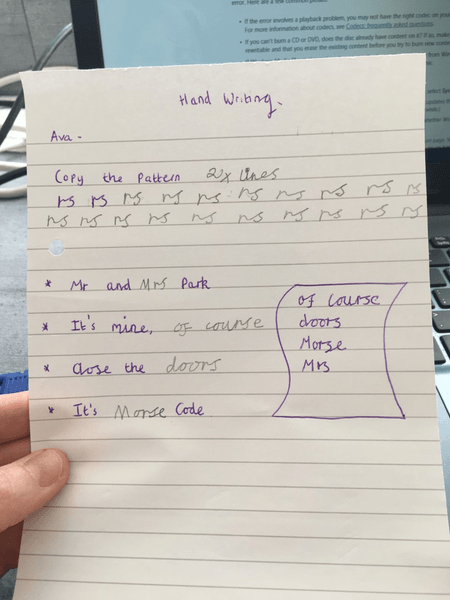 error. Here are a few common problems
• If the error involves a playback problem, you may not have the right codec on your
For more information about codecs, see Codecs: frequently asked questions.
• If you can't burn a CD or DVD, does the disc already have content on it? If so, make
rewritable and that you erase the existing content before you try to burn new
Hand Writing.
Ava -
Copy the Pattern 2x lines
rs rs rs rs rs rs rs rs rs rs
rs rs rs rs rs rs rs rs rs rs
* Mr and Mrs Park
* It's mine, of course
* Close the doors
* It's Morse Code
of course
doors
Morse
Mrs